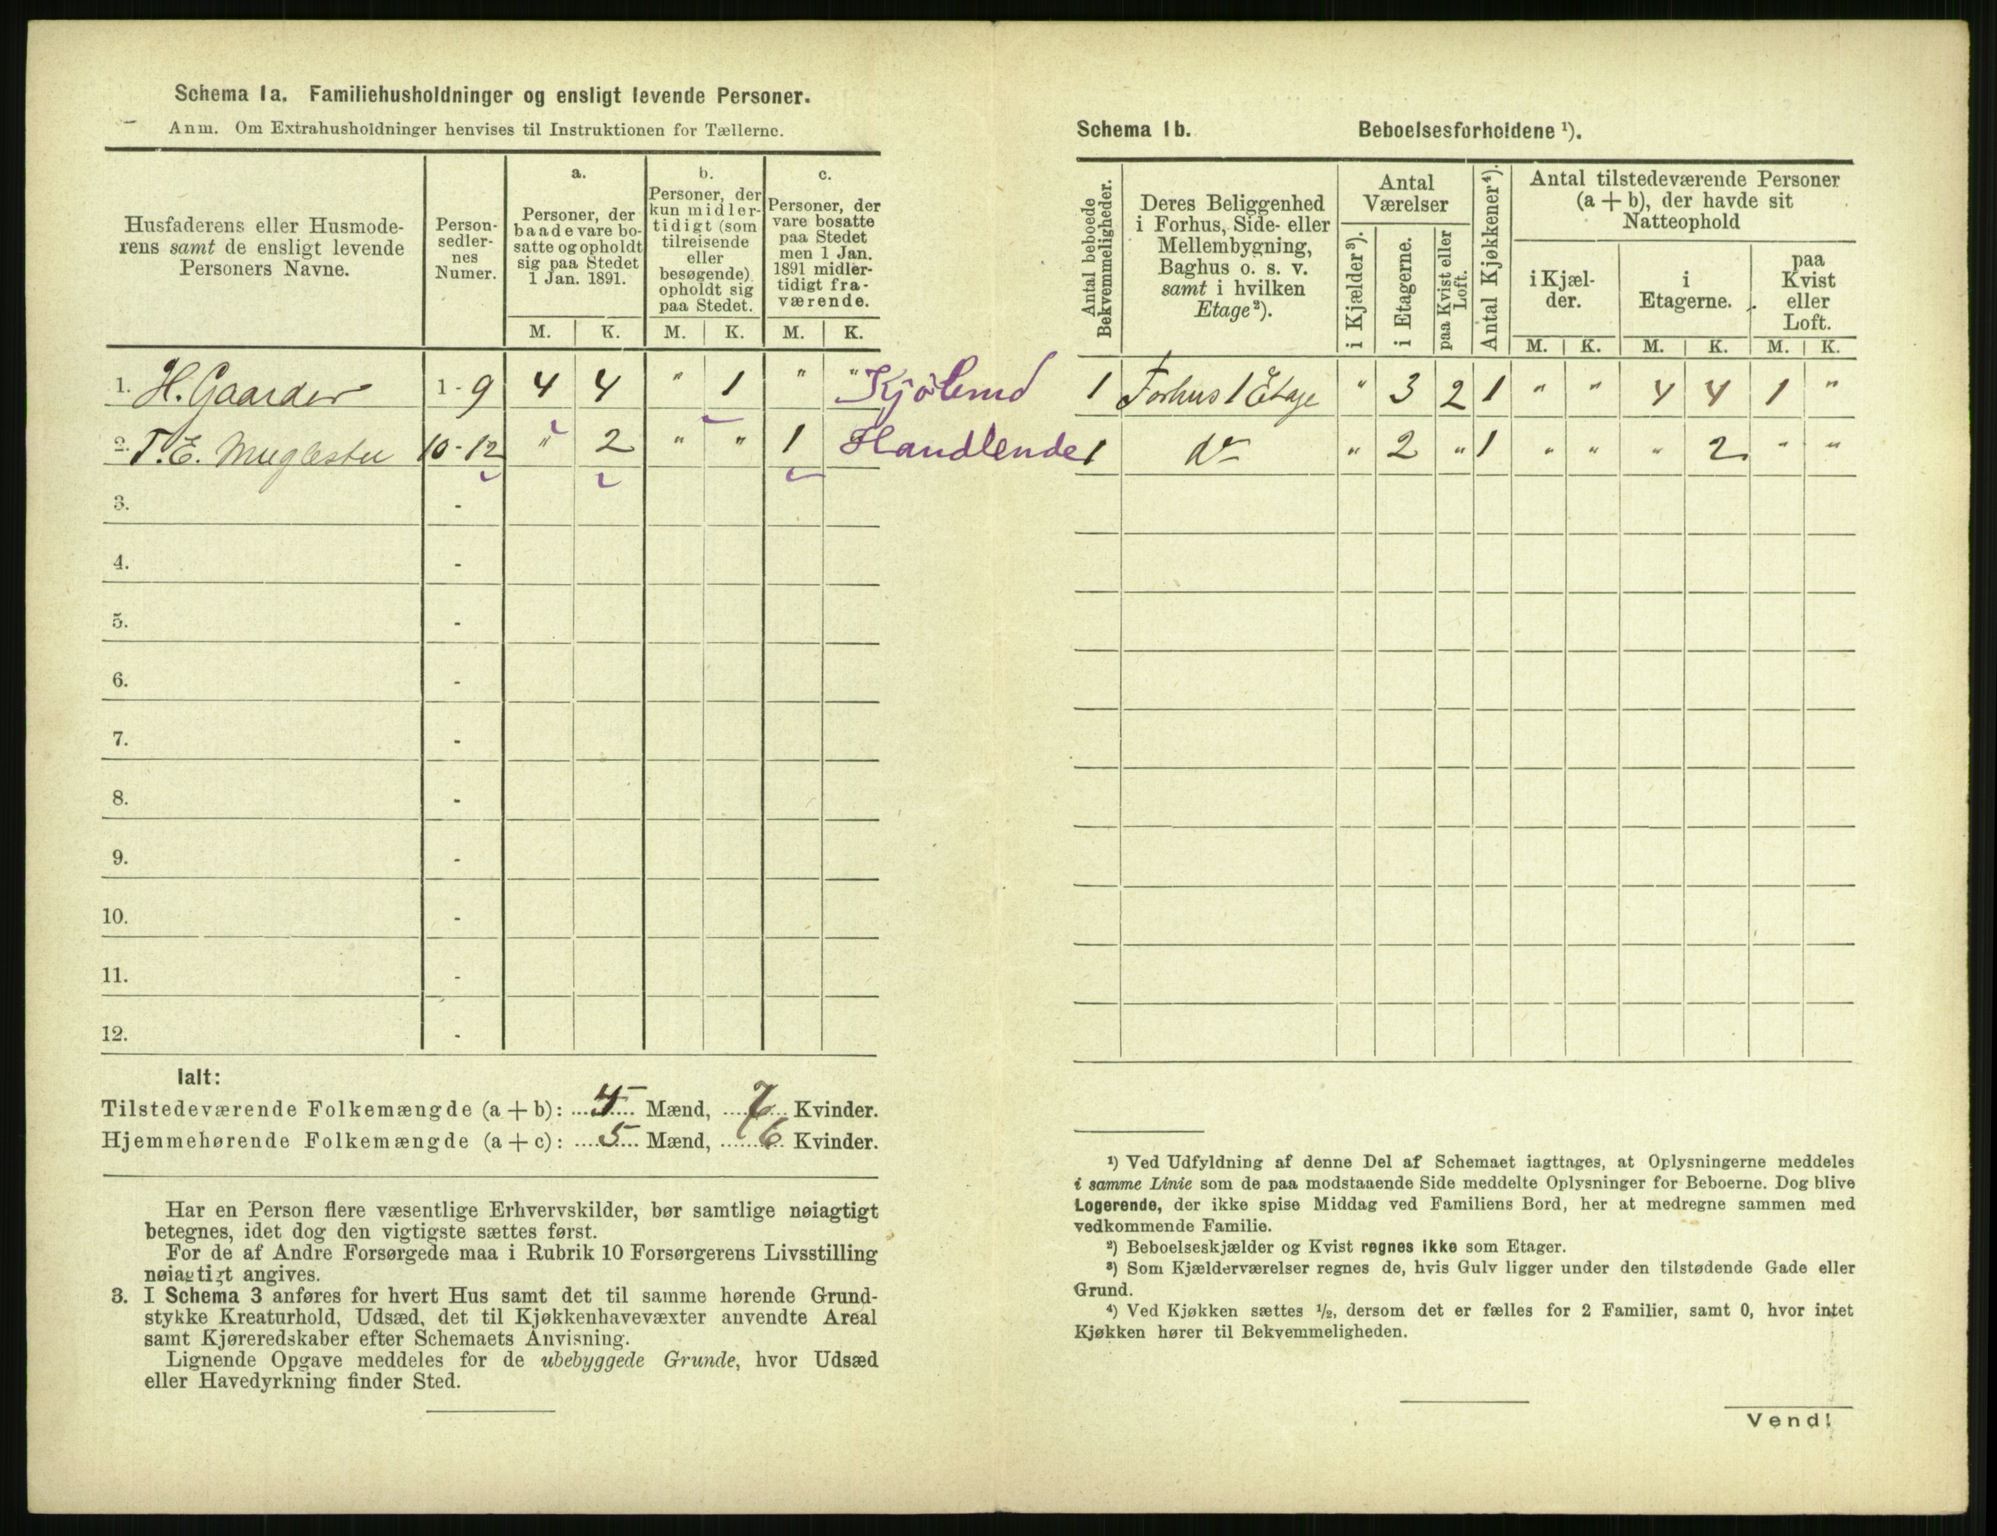 Schema 1a. Familiehusholdninger og ensligt levende Personer.
Anm. Om Extrahusholdninger henvises til Instruktionen for Tællerne.
Husfaderens eller Husmode-
rens samt de ensligt levende
Personers Navne.
Person-
sedler-
nes
Numer.
a.
Personer, der
baade vare bo-
satte og opholdt
sig paa Stedet
1 Jan. 1891.
b.
Personer, der
kun midler-
tidigt (som
tilreisende
eller
besøgende)
opholdt sig
paa Stedet.
c.
Personer, der
vare bosatte
paa Stedet
men 1 Jan.
1891 midler-
tidigt fra-
værende.
M. K. M. K. M. K.
1. H. Gaarder 1-9 4 4 " 1 " "
2. T. E. 10-12 " 2 " " 1 Handlende
3. -
4. -
5. -
6. -
7. -
8. -
9. -
10. -
11. -
12. -
Ialt:
Tilstedeværende Folkemængde (a + b): Mænd, 7 Kvinder.
Hjemmehørende Folkemængde (a + c): 5 Mænd, 6 Kvinder.
Har en Person flere væsentlige Erhvervskilder, bør samtlige nøiagtigt
betegnes, idet dog den vigtigste sættes først.
For de af Andre Forsørgede maa i Rubrik 10 Forsørgerens Livsstilling
nøiagtigt angives.
3. I Schema 3 anføres for hvert Hus samt det til samme hørende Grund-
stykke Kreaturhold, Udsæd, det til Kjøkkenhavevæxter anvendte Areal
samt Kjøreredskaber efter Schemaets Anvisning.
Lignende Opgave meddeles for de ubebyggede Grunde, hvor Udsæd
eller Havedyrkning finder Sted.
Schema 1b. Beboelsesforholdene ¹).
Antal beboede
Bekvemmeligheder.
Deres Beliggenhed
i Forhus, Side- eller
Mellembygning,
Baghus o. s. v.
samt i hvilken
Etage²).
Antal
Værelser
i Kjælder ³).
i Etagerne.
paa Kvist eller
Loft.
Antal Kjøkkener⁴).
Antal tilstedeværende Personer
(a + b), der havde sit
Natteophold
i Kjæl-
der.
i
Etagerne.
paa
Kvist
eller
Loft.
M. K. M. K. M. K.
1 Forhus 1 Etage " 3 2 1 " " 4 4 1 "
1 do " 2 " 1 " " " 2 " "
¹) Ved Udfyldning af denne Del af Schemaet iagttages, at Oplysningerne meddeles
i samme Linie som de paa modstaaende Side meddelte Oplysninger for Beboerne. Dog blive
Logerende, der ikke spise Middag ved Familiens Bord, her at medregne sammen med
vedkommende Familie.
²) Beboelseskjælder og Kvist regnes ikke som Etager.
³) Som Kjælderværelser regnes de, hvis Gulv ligger under den tilstødende Gade eller
Grund.
⁴) Ved Kjøkken sættes ½, dersom det er fælles for 2 Familier, samt 0, hvor intet
Kjøkken hører til Bekvemmeligheden.
Vend!